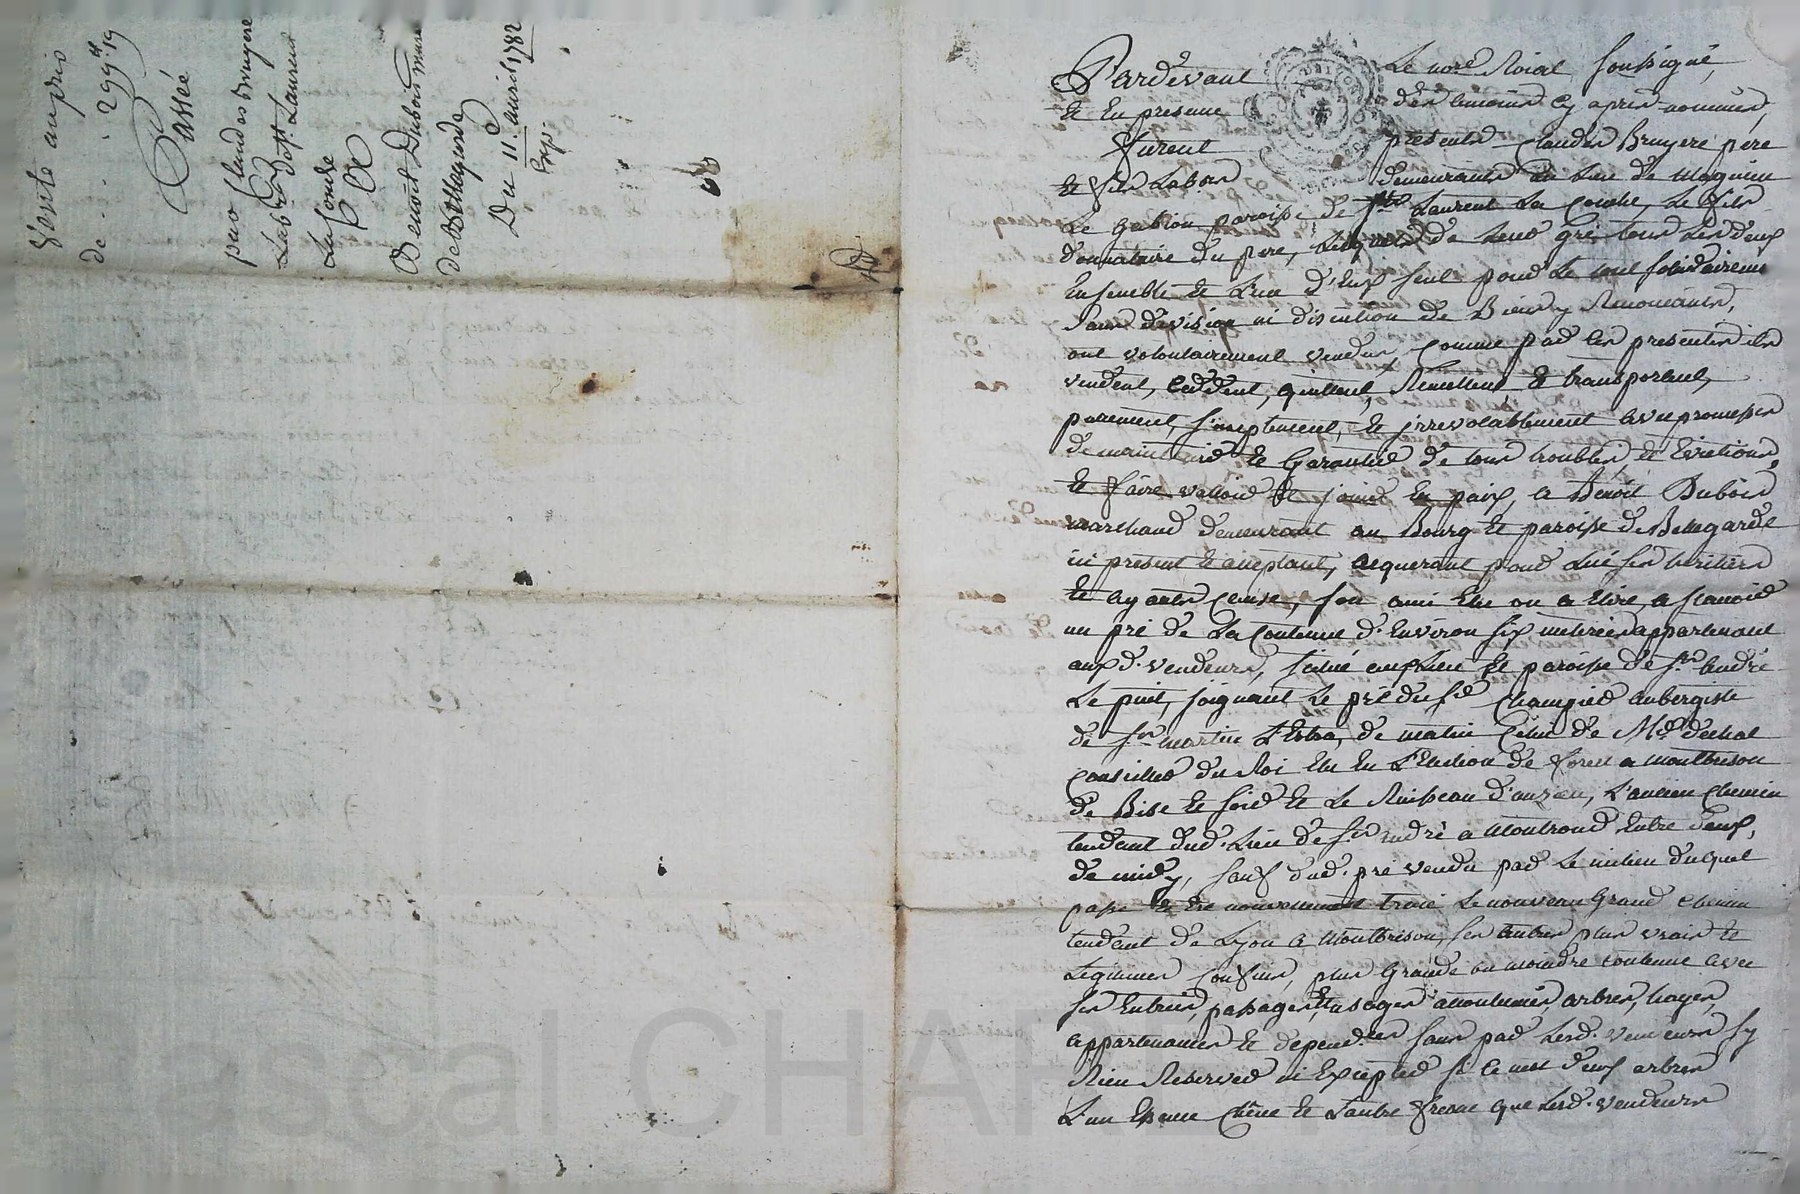 Vente au prix
de . . . 299# 19
Passée
par Claudes Bruyere
Lab.rs de St. Laurens
La Conche
A Benoît Dubois md
de Bellegarde
Du 11e. avril 1782
Exp.
Pardevant Le nore. Roial soussigné,
Et En presence des temoins cy apres nommés,
furent presents Claudes Bruyere pere
et fils Labrs demeurants au lieu de
Le paroisse de St. Laurent La Conche, Le fils
donnataire du pere, Lesquels de Leur gré tous Les deux
Ensemble et L'un d'Eux seul pour Le tout solidairement
sans division ni discution de Biens y Renoncants,
ont volontairement vendus, Comme par les presentes ils
vendent, Cedent, quittent, Remettent, et transportent,
purement, simplement, et jrrevocablement avec promesses
de maintenir et Garantir de tous troubles et Evictions,
et faire valloir et jouir En paix, a Benoît Dubois
marchand demeurant au Bourg et paroisse de Bellegarde
ici present et acceptant, acquerant pour Lui ses heritiers
et ayants Cause, son ami Elu ou a Elire, a scavoir
un pré de La Contenue d'Environ six meterées appartenant
auxd. vendeurs, situé aux Lieu et paroisse de St. André
Le puit, joignant Le pré du sr Champier aubergiste
de St. Martin L'Estra, de matin Celui de Mr. dechal
Conseiller du Roi Elu En L'Election de forest a Montbrison
de Bise et soir et Le Ruisseau d'anzieu, L'ancien Chemin
tendant dud. Lieu de St. André a Montrond Entre deux,
de midy, sauf dud. pré vendu par Le milieu duquel
passe et Est nouvellement tracé Le nouveau Grand Chemin
tendant de Lyon a Montbrison, ses autres plus vrais et
Legitimes Confins, plus Grande ou moindre contenue avec
ses Entrées, passages, Et usages accoutumés, arbres, hayes,
appartenances et dependces sans par Lesd. vendeurs s'y
Rien Reserver ni Excepter si ce n'est deux arbres
L'un Essence Chêne et L'autre frene que Lesd. vendeurs